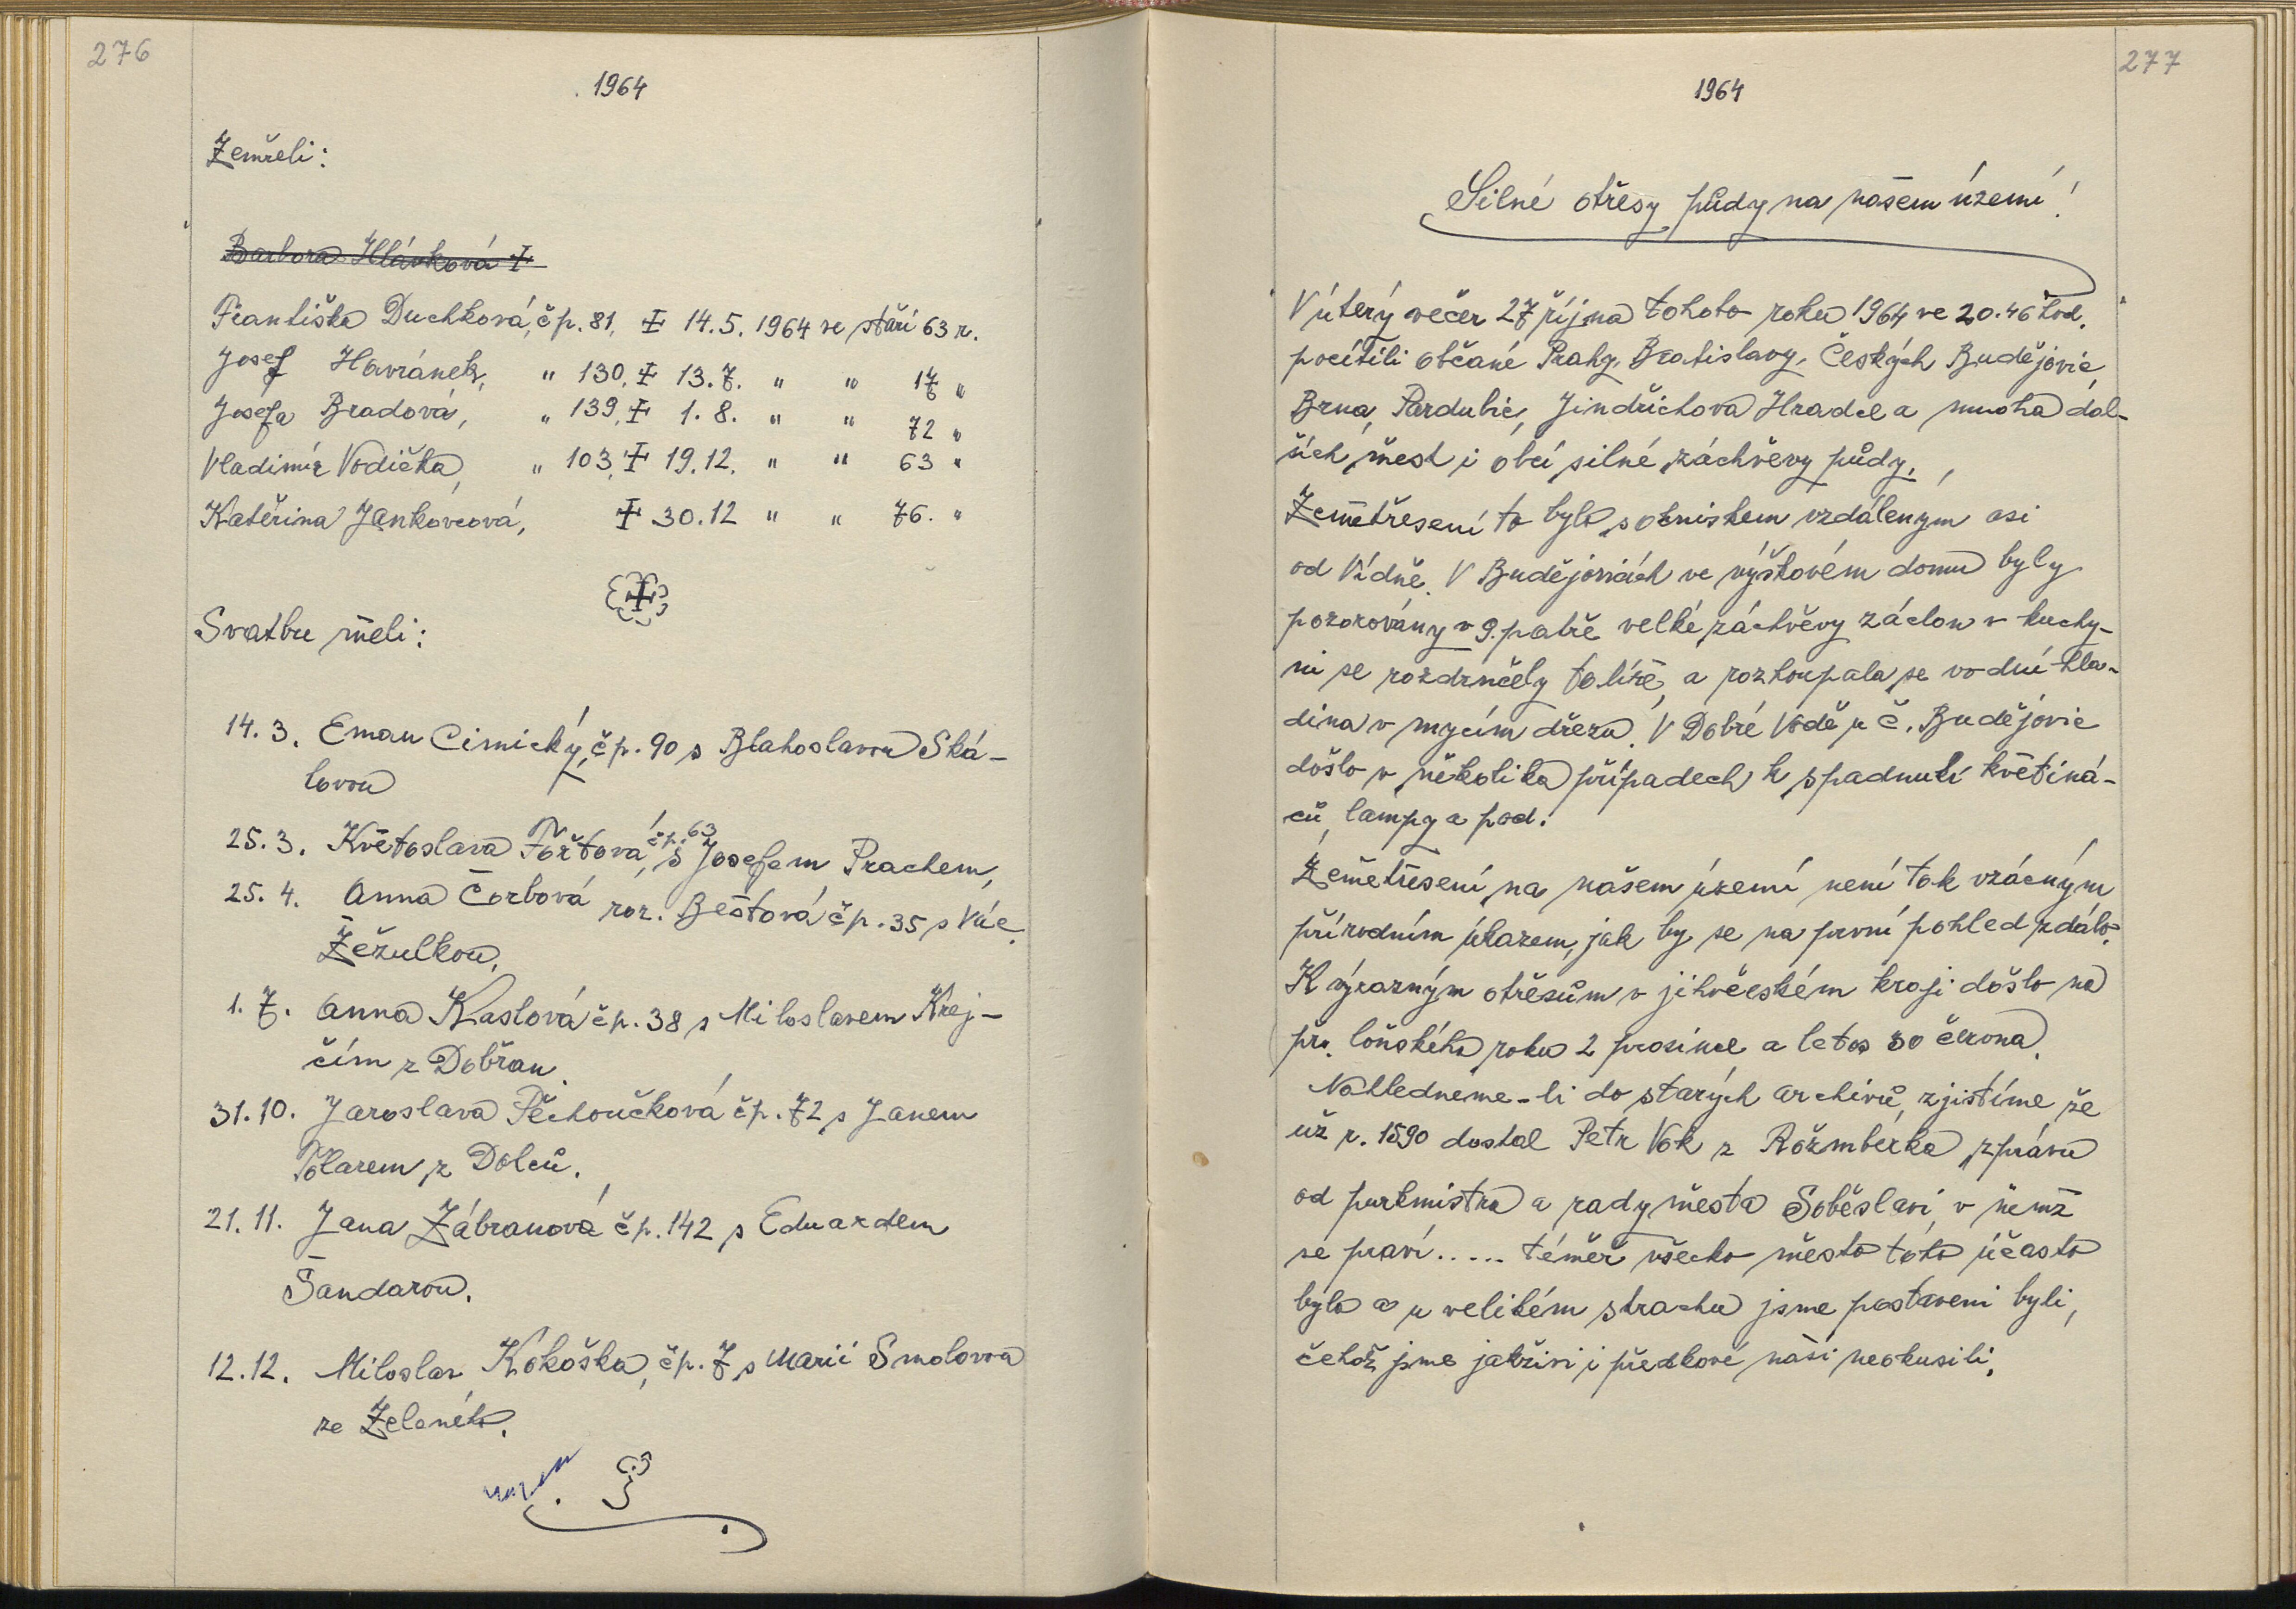 276
1964
Zemřeli:
Barbora Hlávková ‡
Františka Duchková, čp. 81, ‡ 14.5. 1964 ve stáří 63 r.
Josef Havránek, " 130, ‡ 13.7. " " 17 "
Josefa Bradová, " 139, ‡ 1.8. " " 72 "
Vladimír Vodička, " 103, ‡ 19.12. " " 63 "
Kateřina Jankovcová, ‡ 30.12 " " 76. "
Svatbu měli:
14.3. Eman Cimický, čp. 90 s Blahoslavou Ská-
lovou
25.3. Květoslava Fořtová, čp. 63 s Josefem Prachem,
25.4. Anna Čorbová roz. Beštová čp. 35 s Vác.
Žežulkou.
1.7. Anna Kaslová čp. 38 s Miloslavem Krej-
čím z Dobřan.
31.10. Jaroslava Pěchoučková čp. 72 s Janem
Tolarem z Dolců.
21.11. Jana Zábranová čp. 142 s Eduardem
Šandarou.
12.12. Miloslav Kokoška, čp. 7 s Marií Smolovou
ze Zeleného.
277
1964
Silné otřesy půdy na našem území!
V úterý večer 27 října tohoto roku 1964 ve 20.46 hod.
pocítili občané Prahy, Bratislavy, Českých Budějovic,
Brna, Pardubic, Jindřichova Hradce a mnoha dal-
ších měst i obcí silné záchvěvy půdy.
Zemětřesení to bylo s ohniskem vzdáleným asi
od Vídně. V Budějovicích ve výškovém domu byly
pozorovány v 9. patře velké záchvěvy záclon v kuchy-
ni se rozdrnčely talíře, a rozhoupala se vodní hla-
dina v mycím dřezu. V Dobré Vodě u Č. Budějovic
došlo v několika případech k spadnutí květiná-
čů, lampy a pod.
Zemětřesení na našem území není tak vzácným
přírodním úkazem, jak by se na první pohled zdálo.
K výrazným otřesům v jihočeském kraji došlo na
př. loňského roku 2 prosince a letos 30 června.
Nahledneme-li do starých archivů, zjistíme, že
už r. 1590 dostal Petr Vok z Rožmberka zprávu
od purkmistra a rady města Soběslavi, v němž
se praví ..... téměř všecko město toho účasto
bylo a u velikém strachu jsme postaveni byli,
čehož jsme jakživi i předkové naši neokusili.